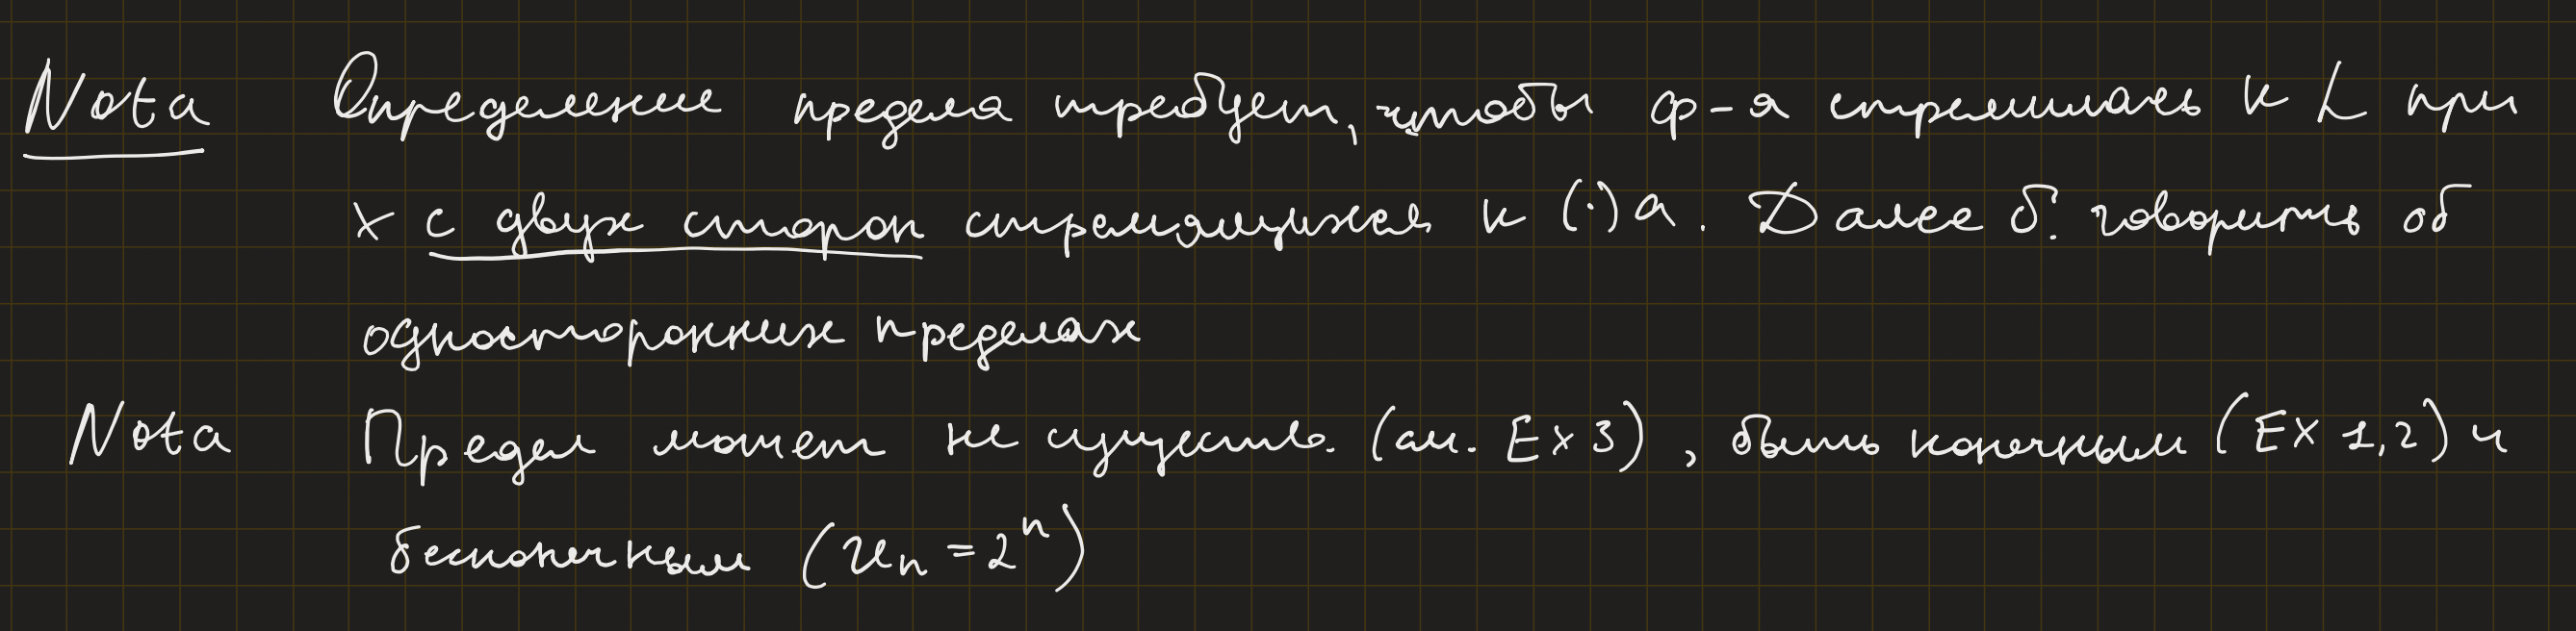 Nota Определение предела требует, чтобы ф-я стремилась к L при
x с двух сторон стремящихся к (·) a. Далее б. говорить об
односторонних пределах
Nota Предел может не существ. (см. Ex 3), быть конечным (Ex 1,2) и
бесконечным (uₙ = 2ⁿ)